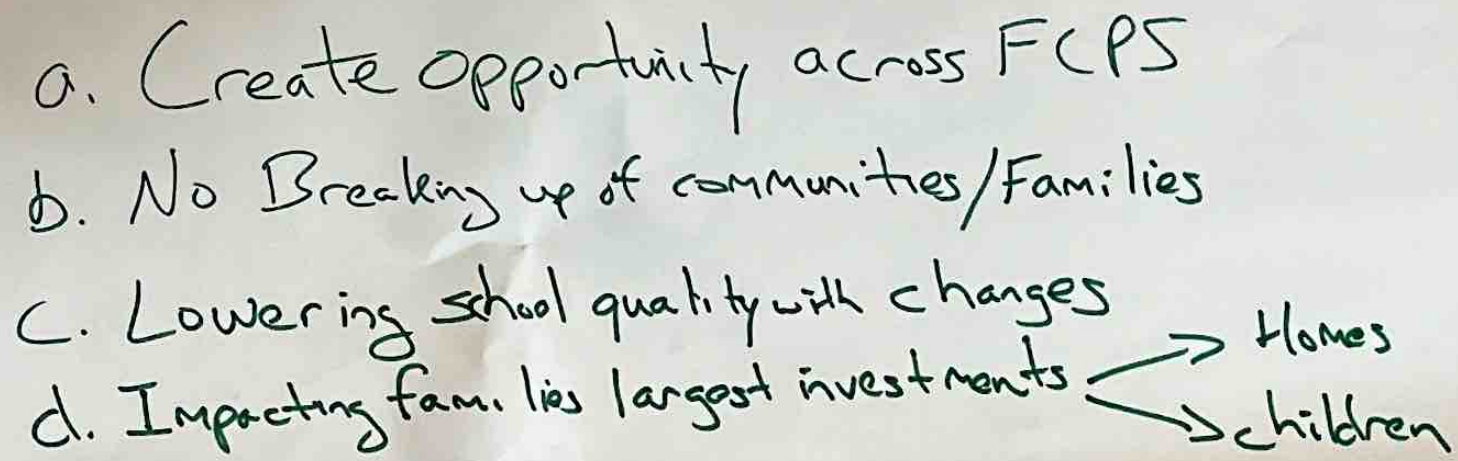 a. Create opportunity across FCPS
b. No Breaking up of communities/Families
c. Lowering school quality with changes
d. Impacting families largest investments → Homes
→ children